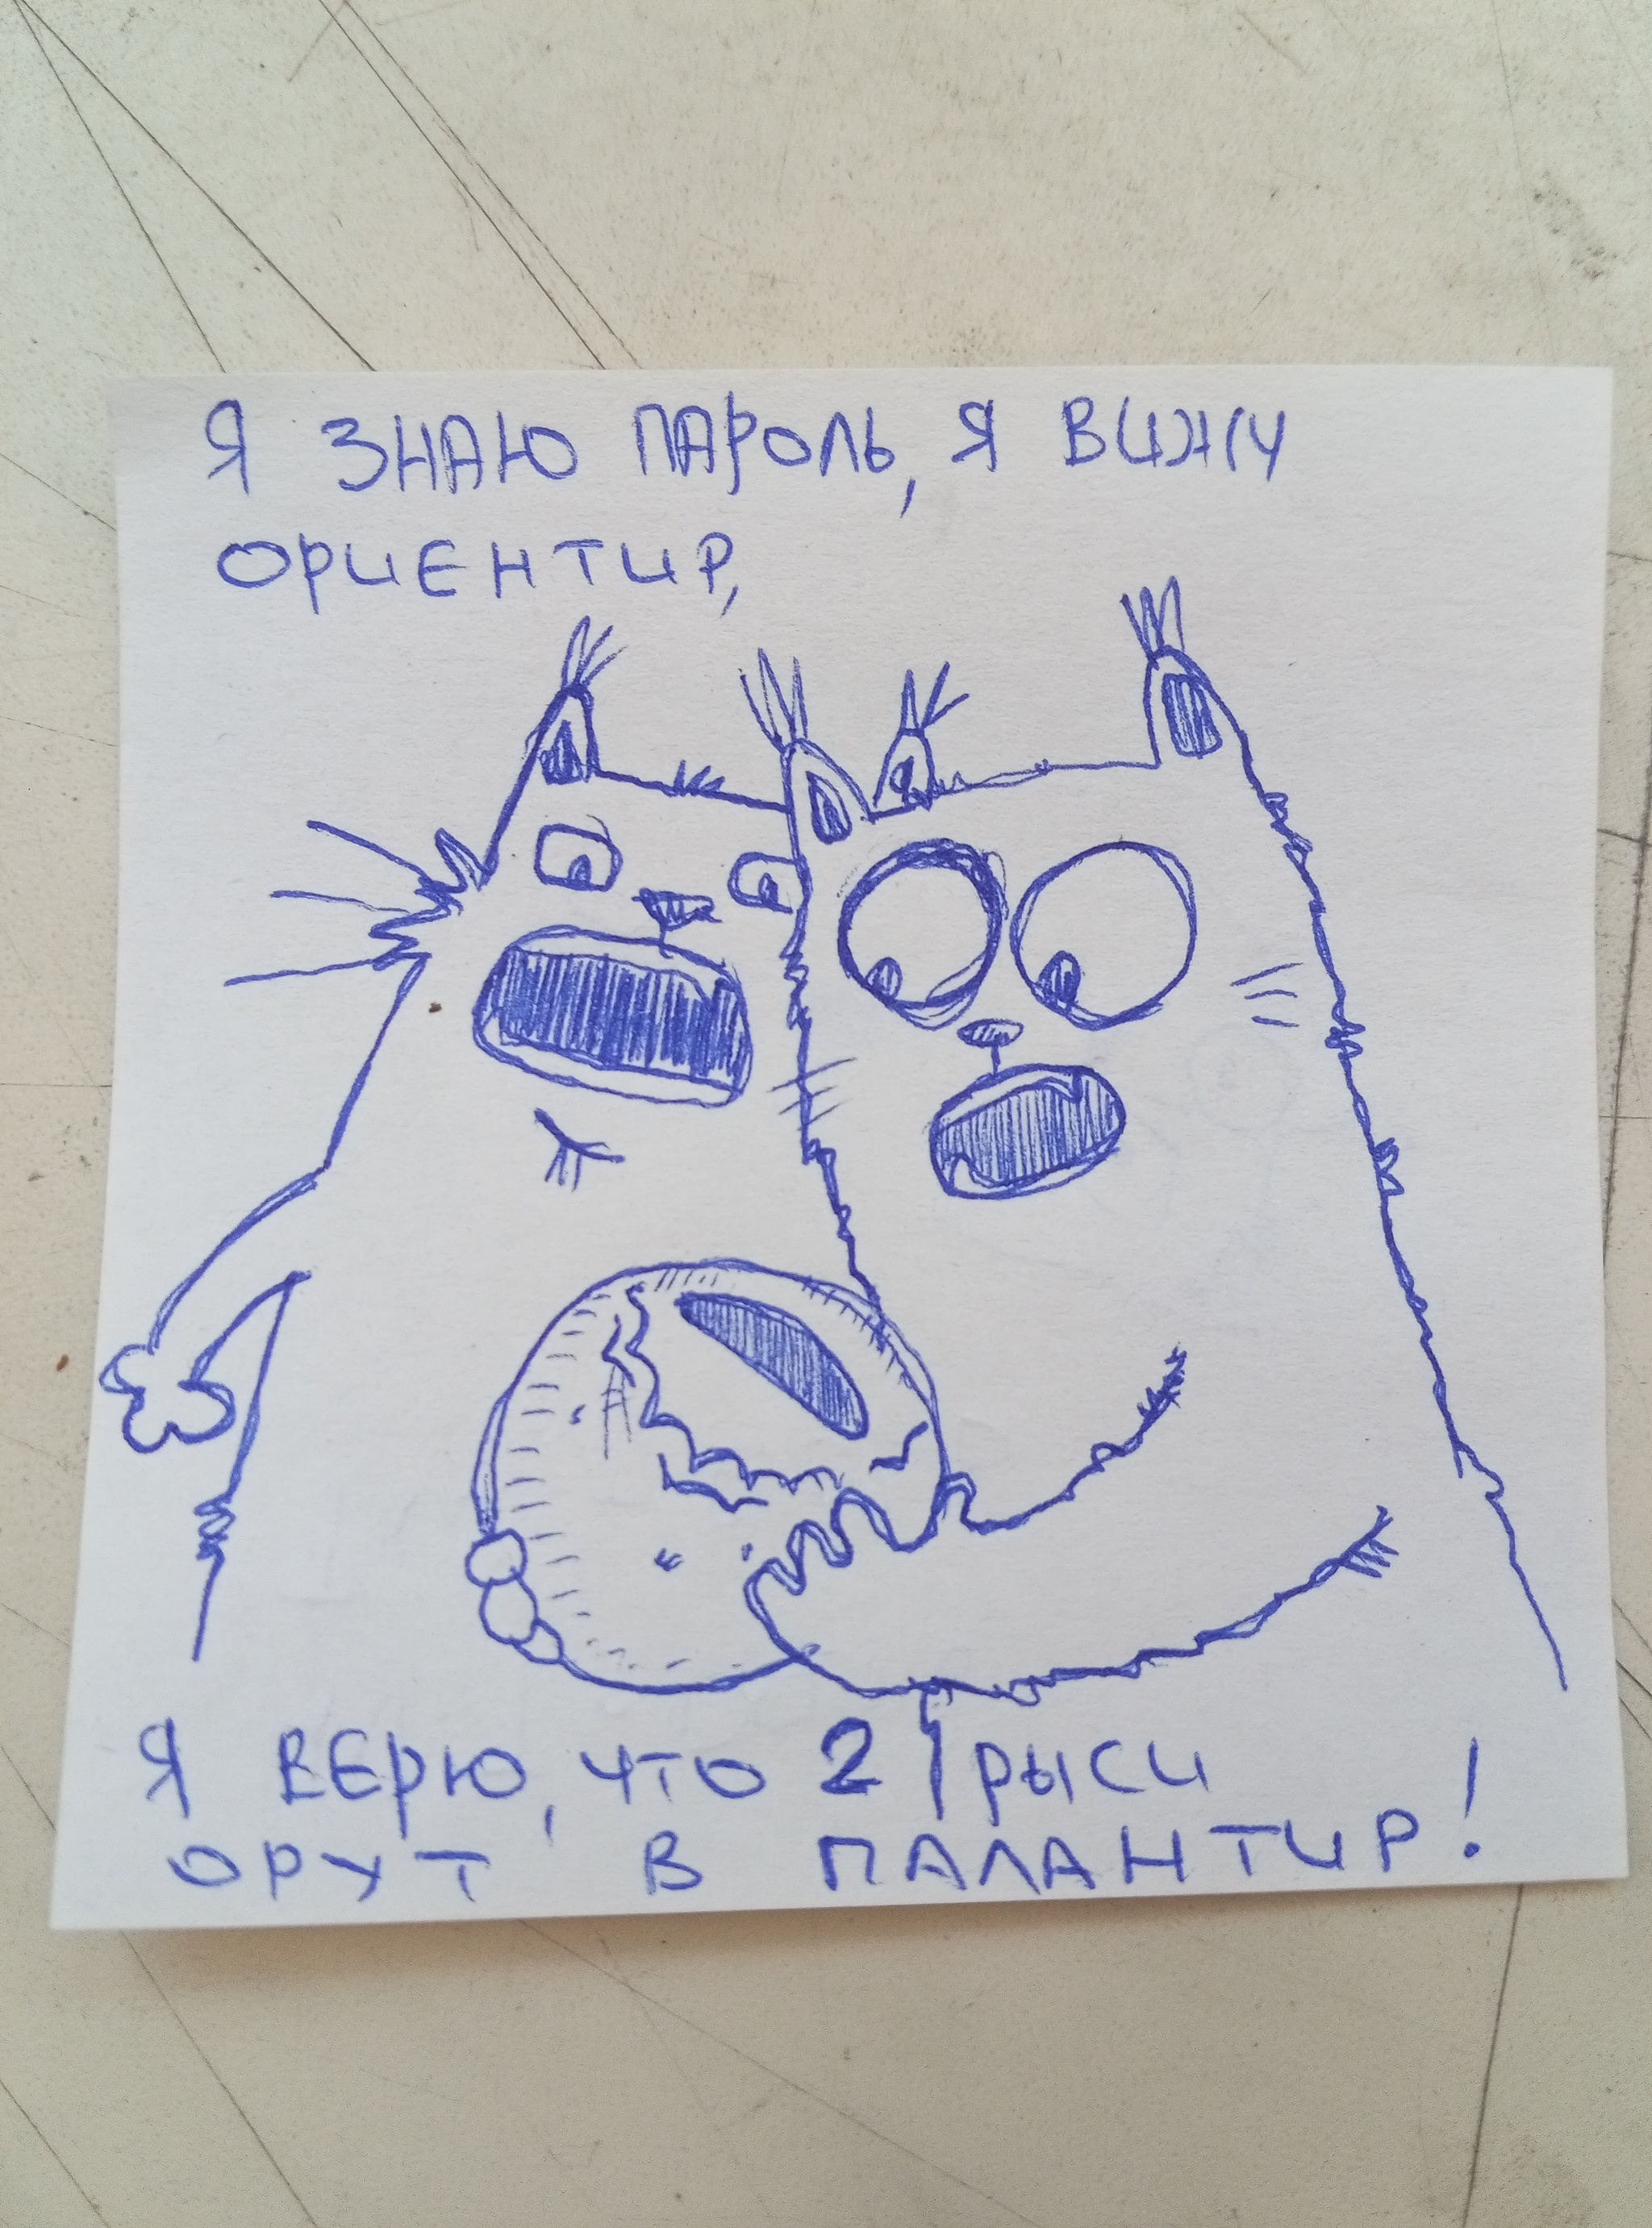 Я ЗНАЮ ПАРОЛЬ, Я ВИЖУ
ОРИЕНТИР,
Я ВЕРЮ, ЧТО 2 РЫСИ
ОРУТ В ПАЛАНТИР!